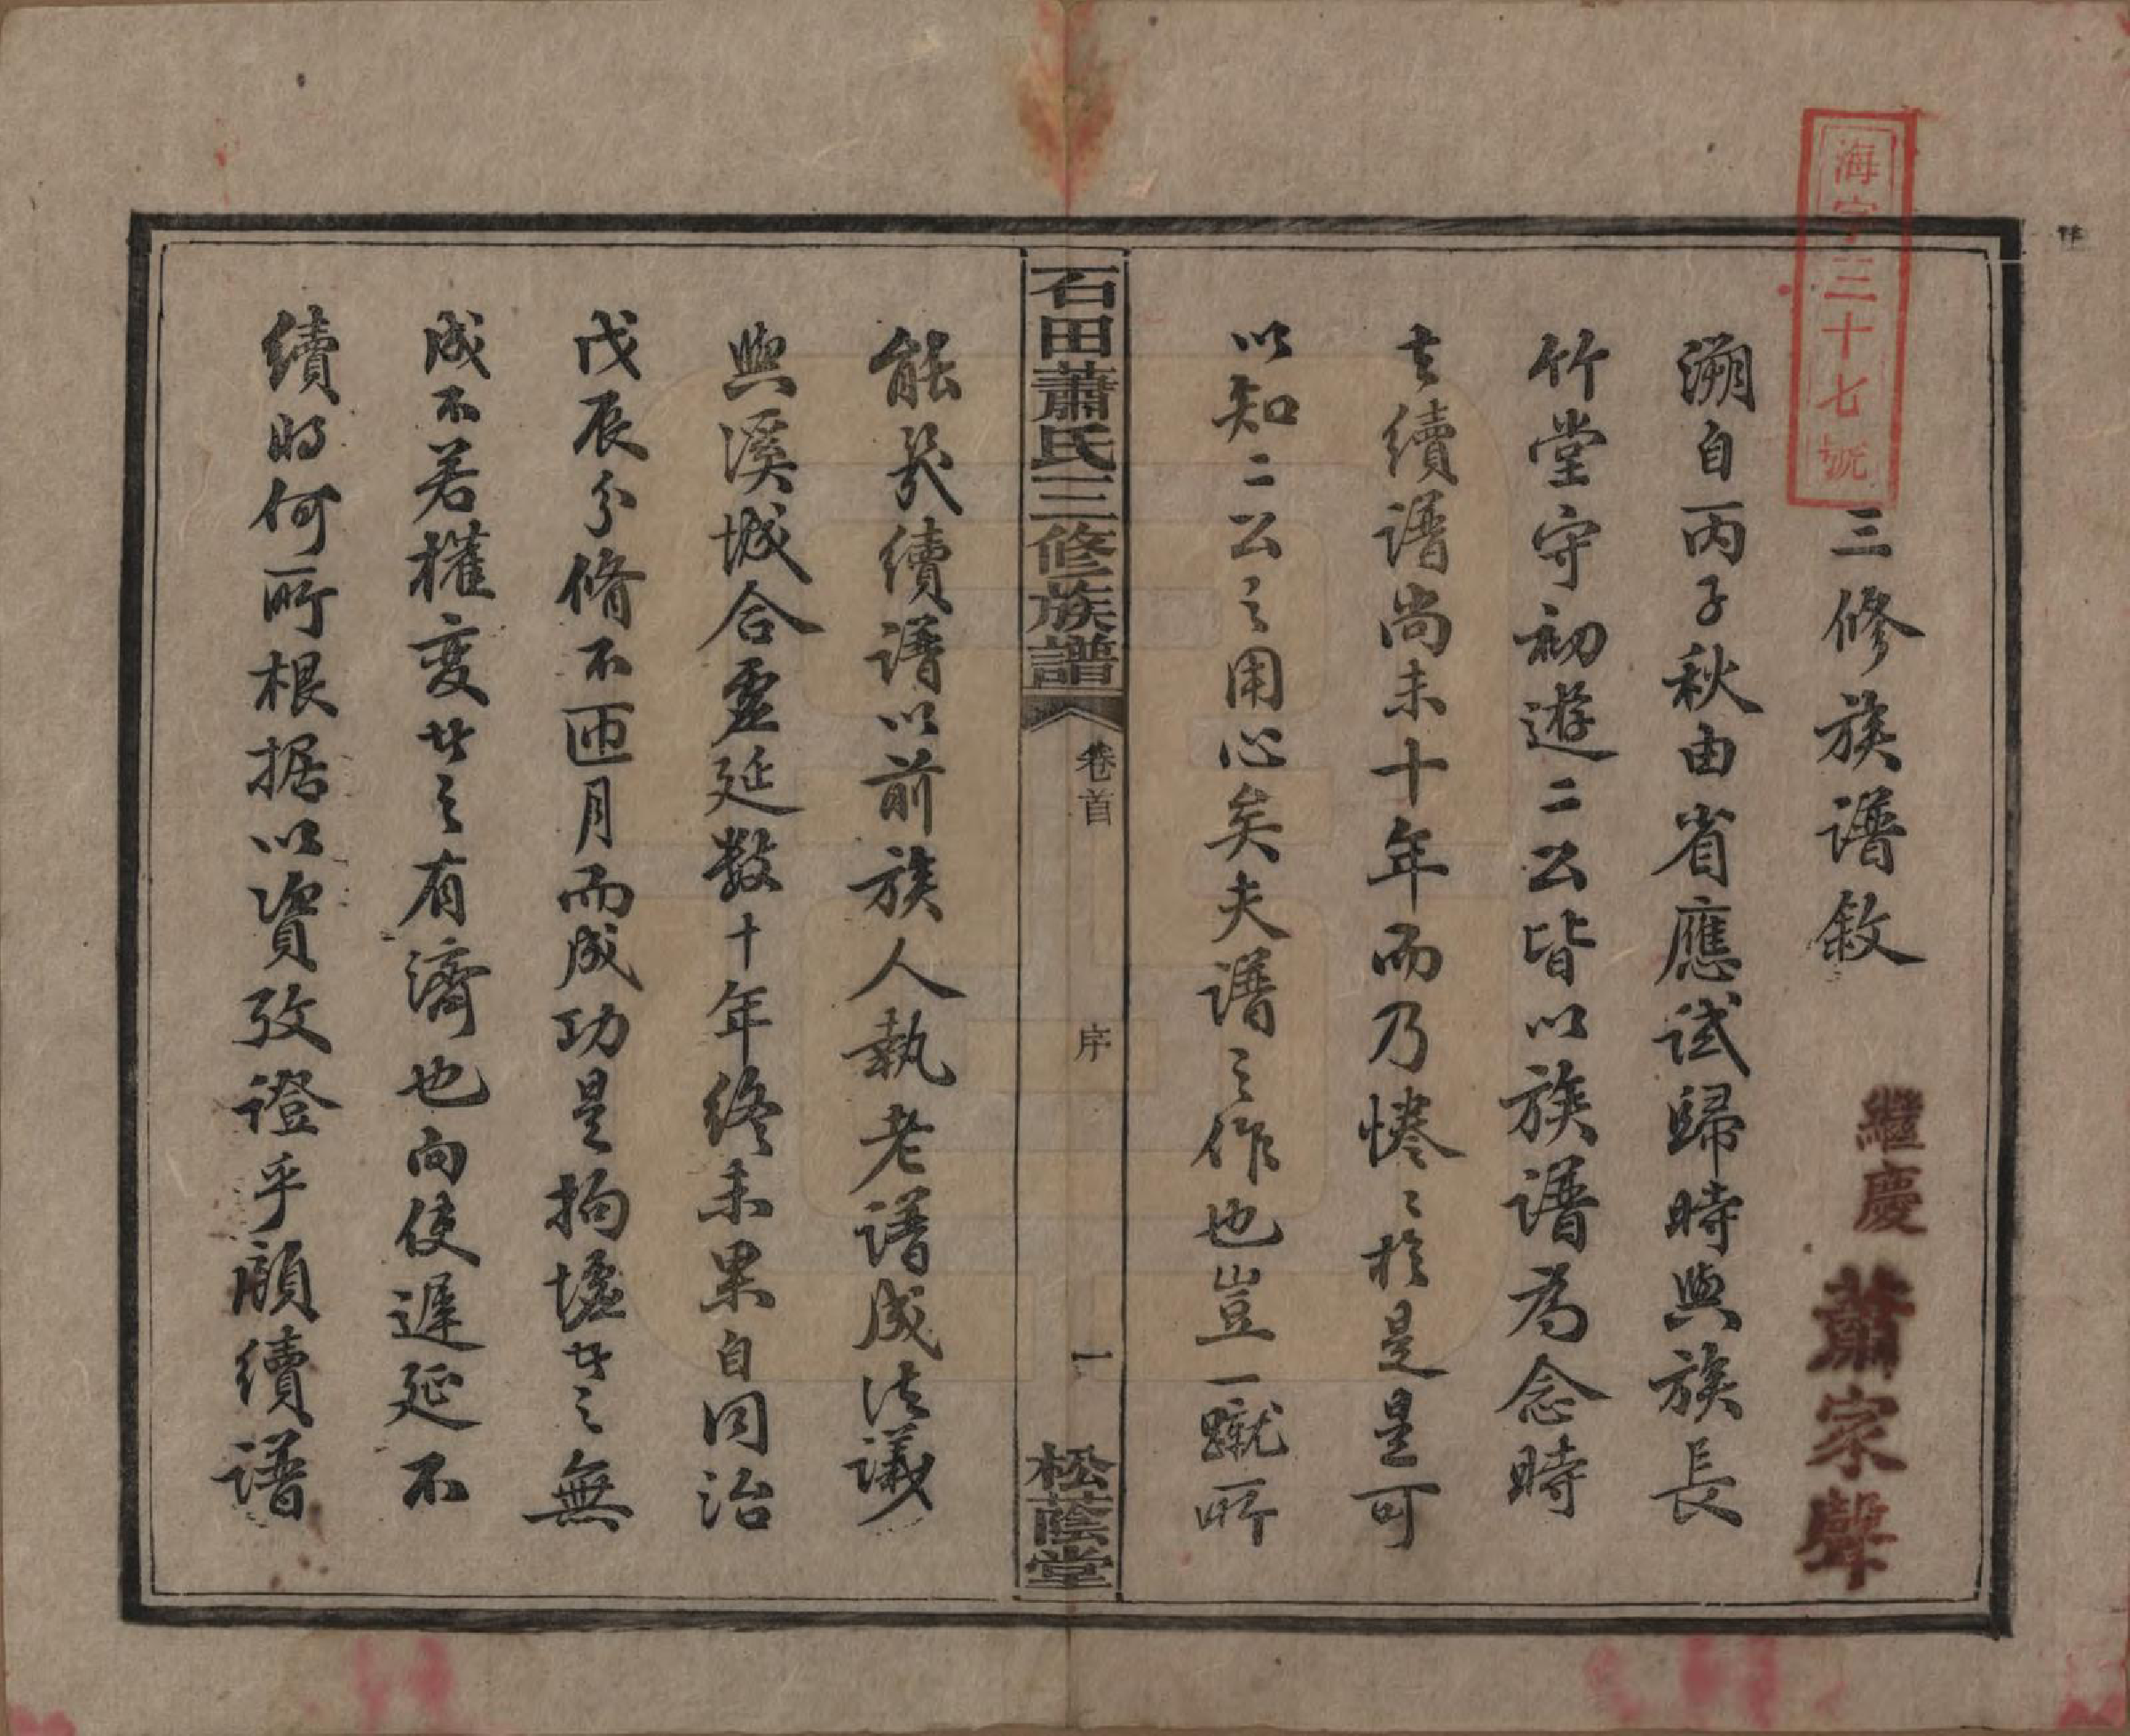 海字三十七號
三修族譜敘
繼慶 蕭家聲
溯自丙子秋由省應試歸時與族長
竹堂守初遊二公皆以族譜為念時
去續譜尚未十年而乃惓〻於是是可
以知二公之用心矣夫譜之作也豈一蹴所
石田蕭氏三修族譜 卷首 序 一 松蔭堂
能哉續譜以前族人執老譜成法議
與溪城合靈延數十年終未果自同治
戊辰分脩不匝月而成功是拘墟者之無
成不若權變者之有濟也向使遲延不
續將何所根据以資攷證乎願續譜